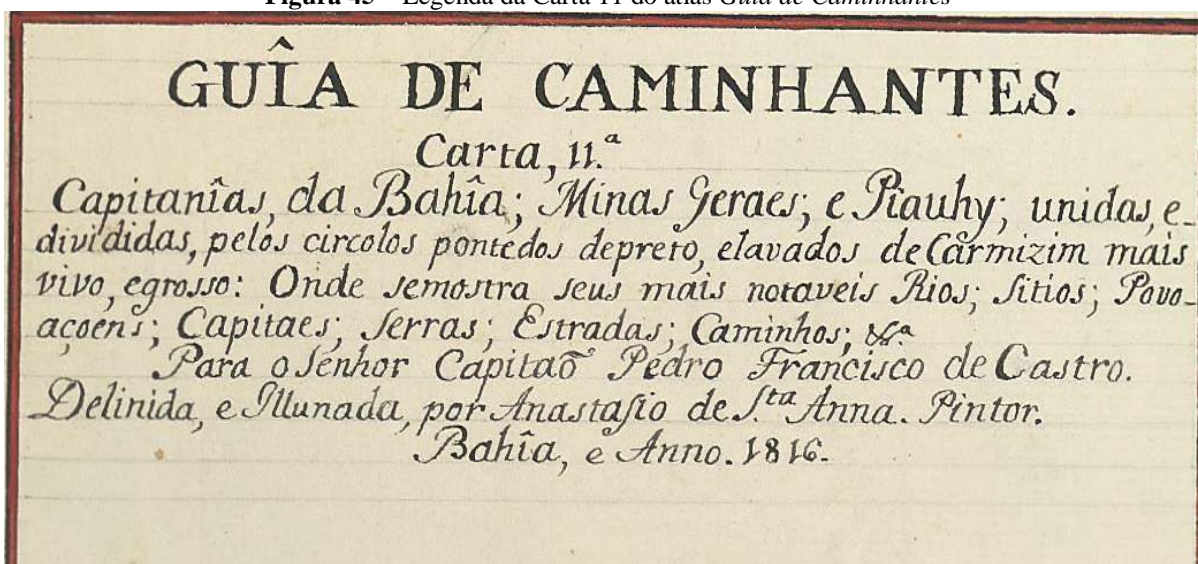 Figura 45 – Legenda da Carta 11 do atlas Guia de Caminhantes
GUÎA DE CAMINHANTES.
Carta, 11.ª
Capitanîas, da Bahîa; Minas Geraes; e Piauhy; unidas, e-
divididas, pelos circolos pontedos depreto, elavados de Carmizim mais
vivo, egrosso: Onde semostra seus mais notaveis Rios; Sitios; Povo-
açoens; Capitaes; Serras; Estradas; Caminhos; &ª
Para o Senhor Capitaõ Pedro Francisco de Castro.
Delinida, e Illunada, por Anastasio de S.ta Anna. Pintor.
Bahîa, e Anno. 1816.